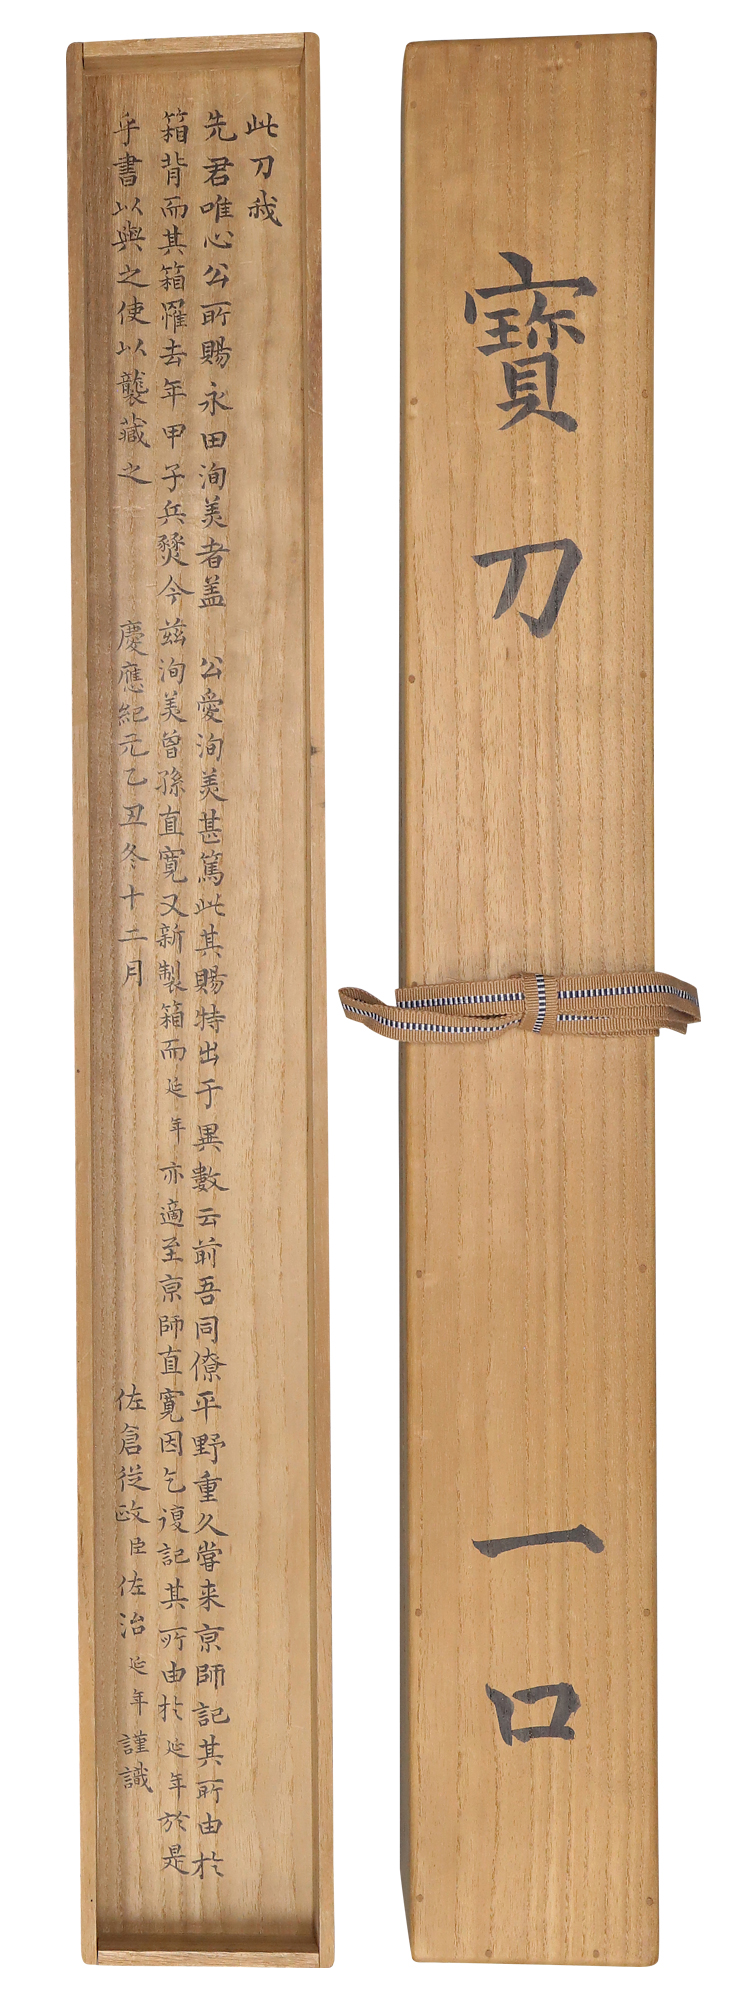 此刀我
先君唯心公所賜永田洵美者蓋　公愛洵美甚篤此其賜特出于異數云前吾同僚平野重久嘗来京師記其所由於
箱背而其箱罹去年甲子兵燹今茲洵美曾孫直寛又新製箱而延年亦適至京師直寛因乞復記其所由於延年於是
乎書以與之使以襲藏之　慶應紀元乙丑冬十二月　佐倉従政臣佐治延年謹識
寶刀　一口